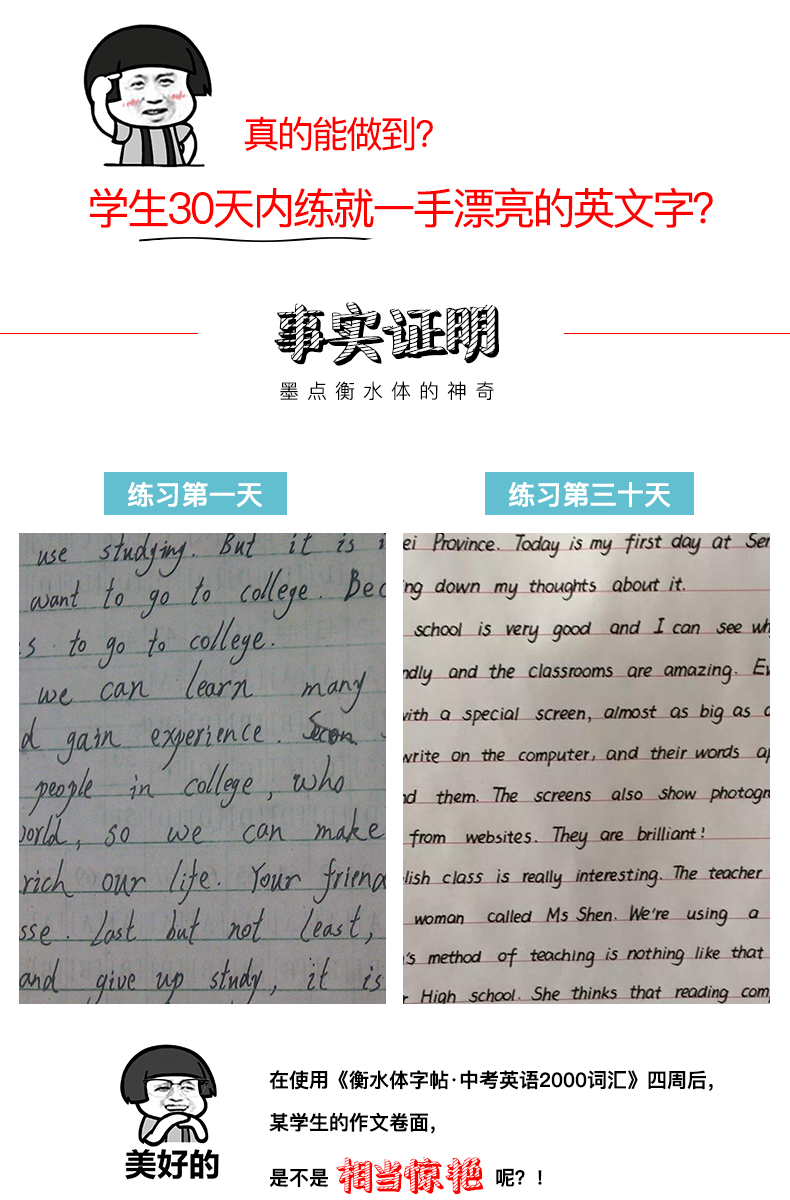 真的能做到?
学生30天内练就一手漂亮的英文字?
事实证明
墨点衡水体的神奇
练习第一天
练习第三十天
use studying. But it is i
want to go to college. Bec
s to go to college.
we can learn many
d gain experience.
people in college, who
world, so we can make
rich our life. Your friend
sse. Last but not least,
and give up study, it is
ei Province. Today is my first day at Sen
ng down my thoughts about it.
school is very good and I can see wh
ndly and the classrooms are amazing. Ev
with a special screen, almost as big as a
write on the computer, and their words ap
nd them. The screens also show photogr
from websites. They are brilliant!
lish class is really interesting. The teacher
woman called Ms Shen. We're using a
's method of teaching is nothing like that
r High school. She thinks that reading com
美好的
在使用《衡水体字帖·中考英语2000词汇》四周后,
某学生的作文卷面,
是不是 相当惊艳 呢?!